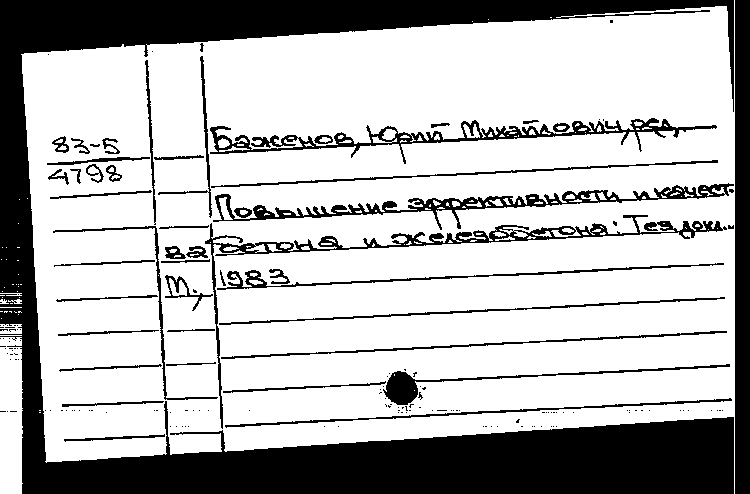 83-5
4798
Баженов, Юрий Михайлович, ред.
Повышение эффективности и качест-
ва бетона и железобетона: Тез. докл...
М., 1983.